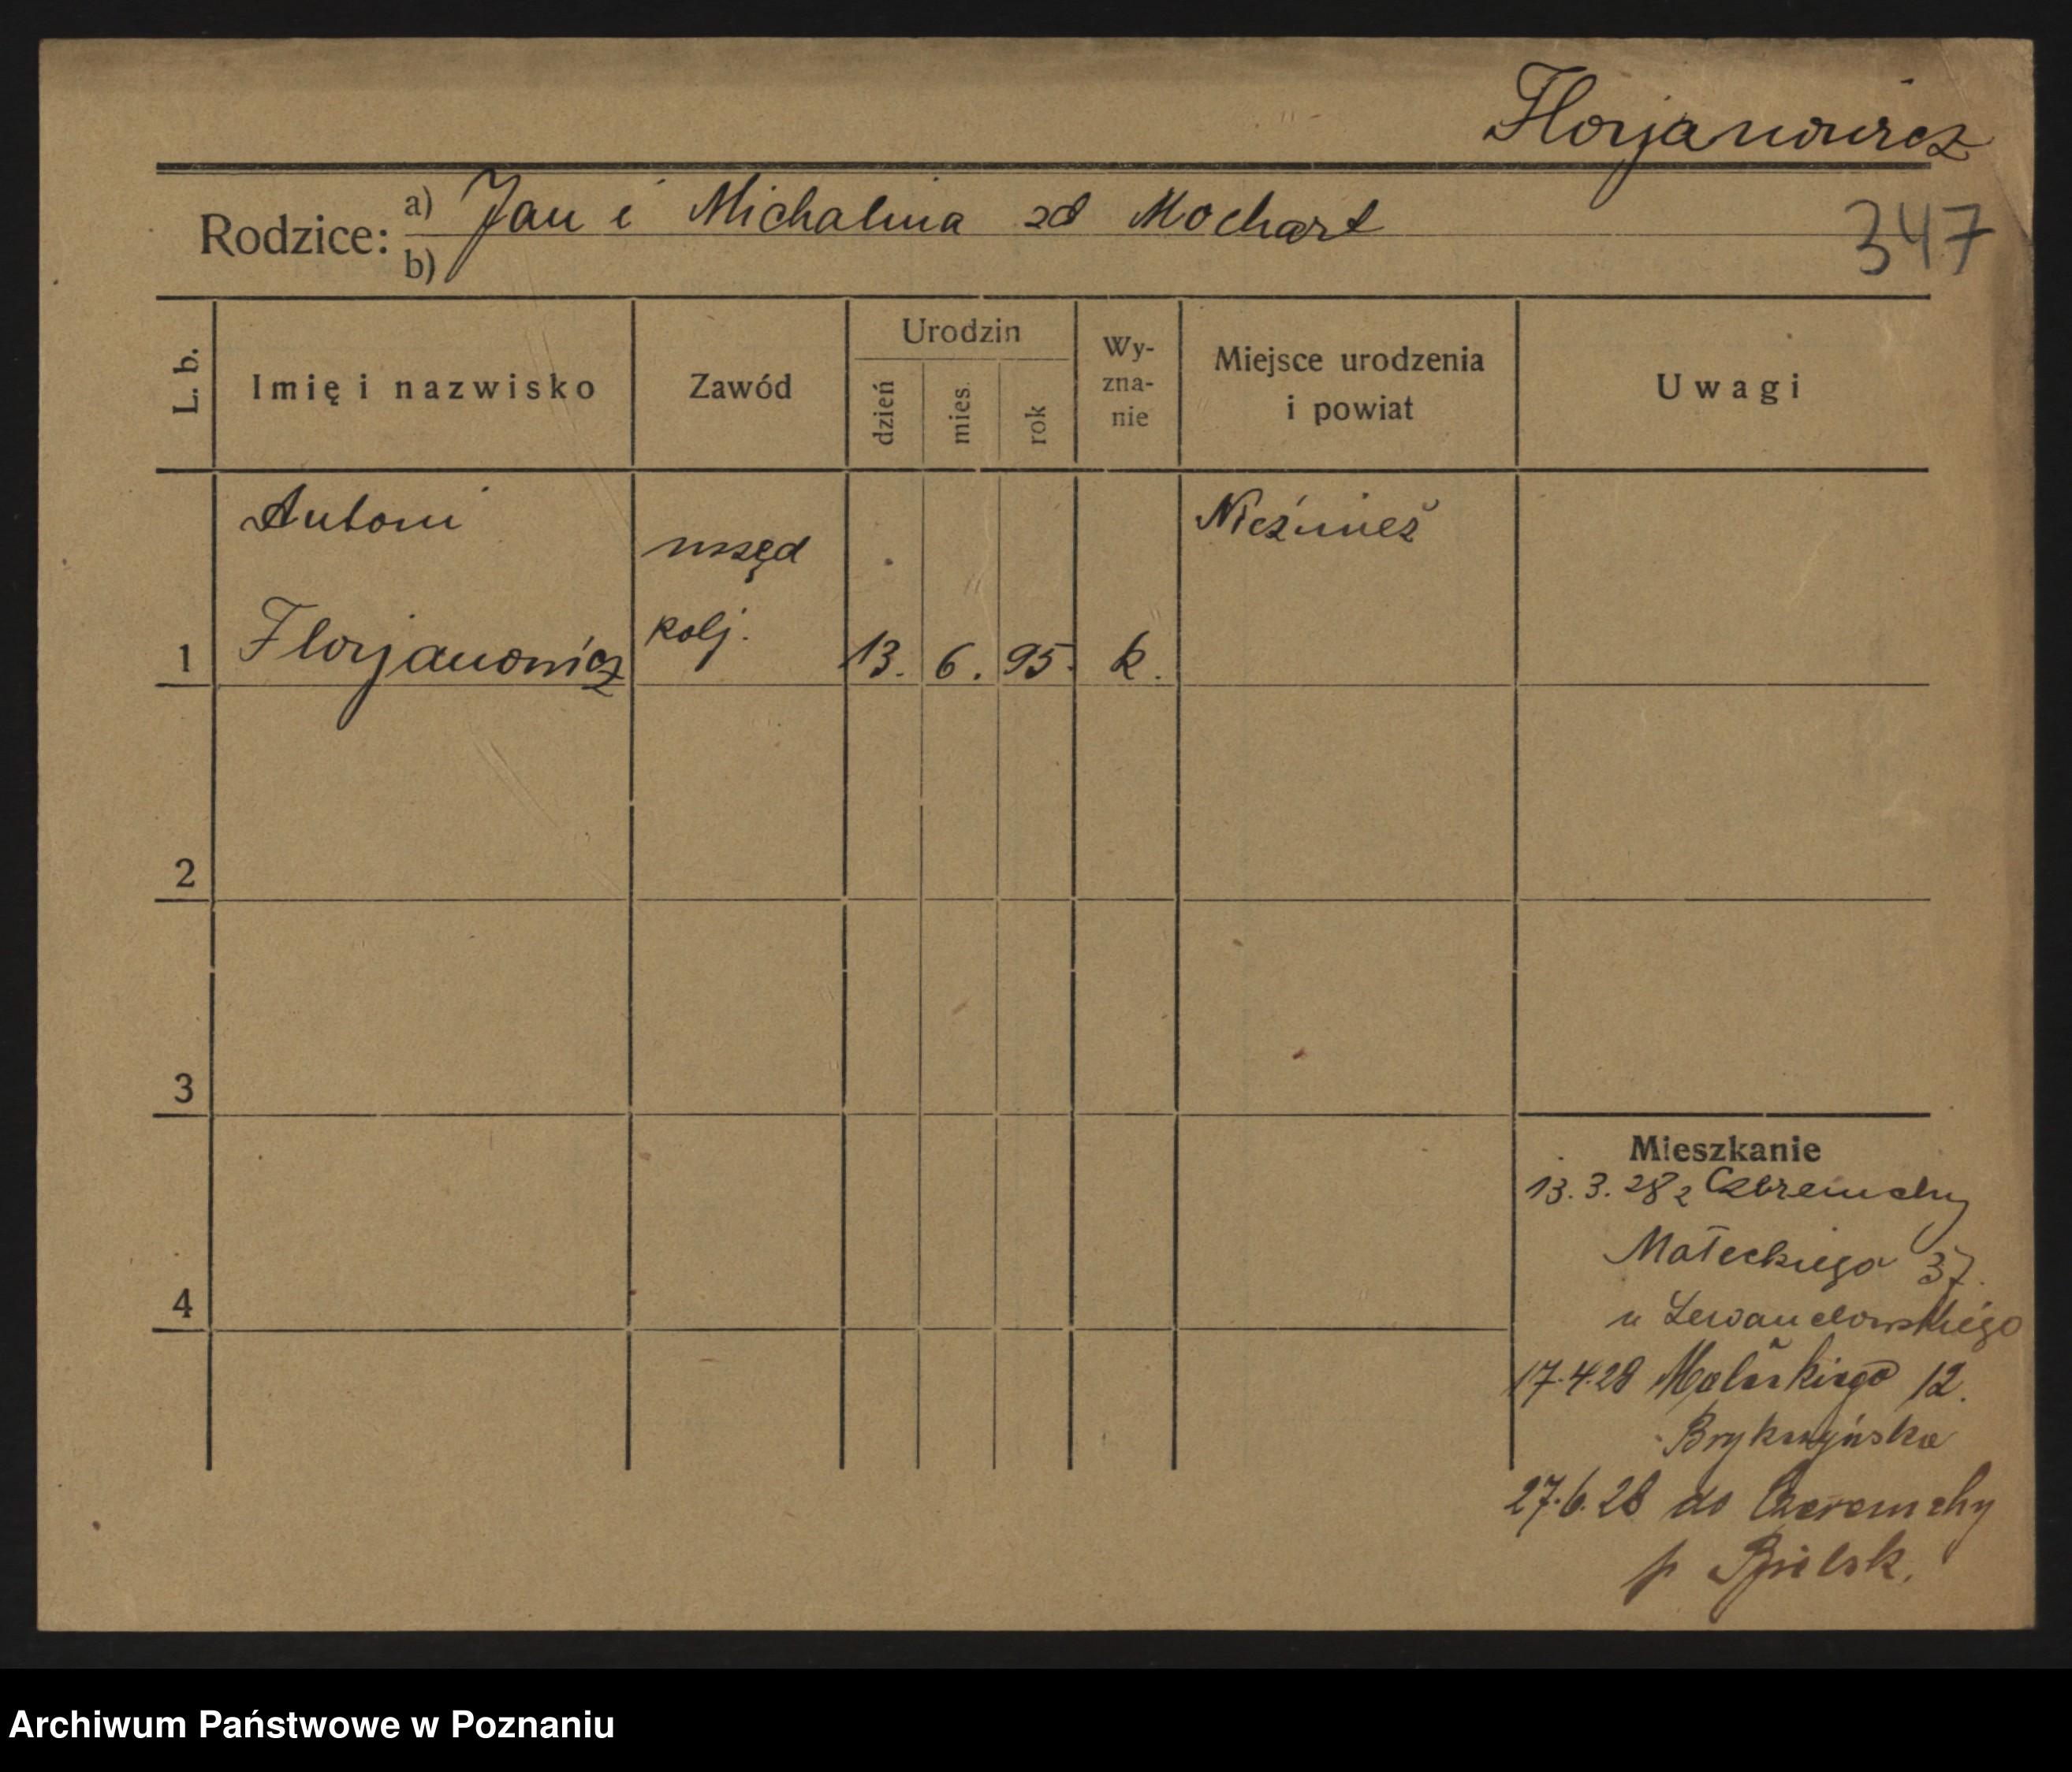 Florjanowicz
Rodzice: a) Jan i Michalina zd Mochart
b)
347
L. b.
Imię i nazwisko
Zawód
Urodzin
dzień
mies.
rok
Wy-
zna-
nie
Miejsce urodzenia
i powiat
Uwagi
Antoni
Florjanowicz
urzęd
kolj.
13. 6. 95. k.
Nieśwież
1
2
3
4
Mieszkanie
13. 3. 28 z Czeremchy
Małeckiego 37.
u Lewandowskiego
17.4.28 12.
27.6.28 do Czeremchy
p Bielsk.
Archiwum Państwowe w Poznaniu